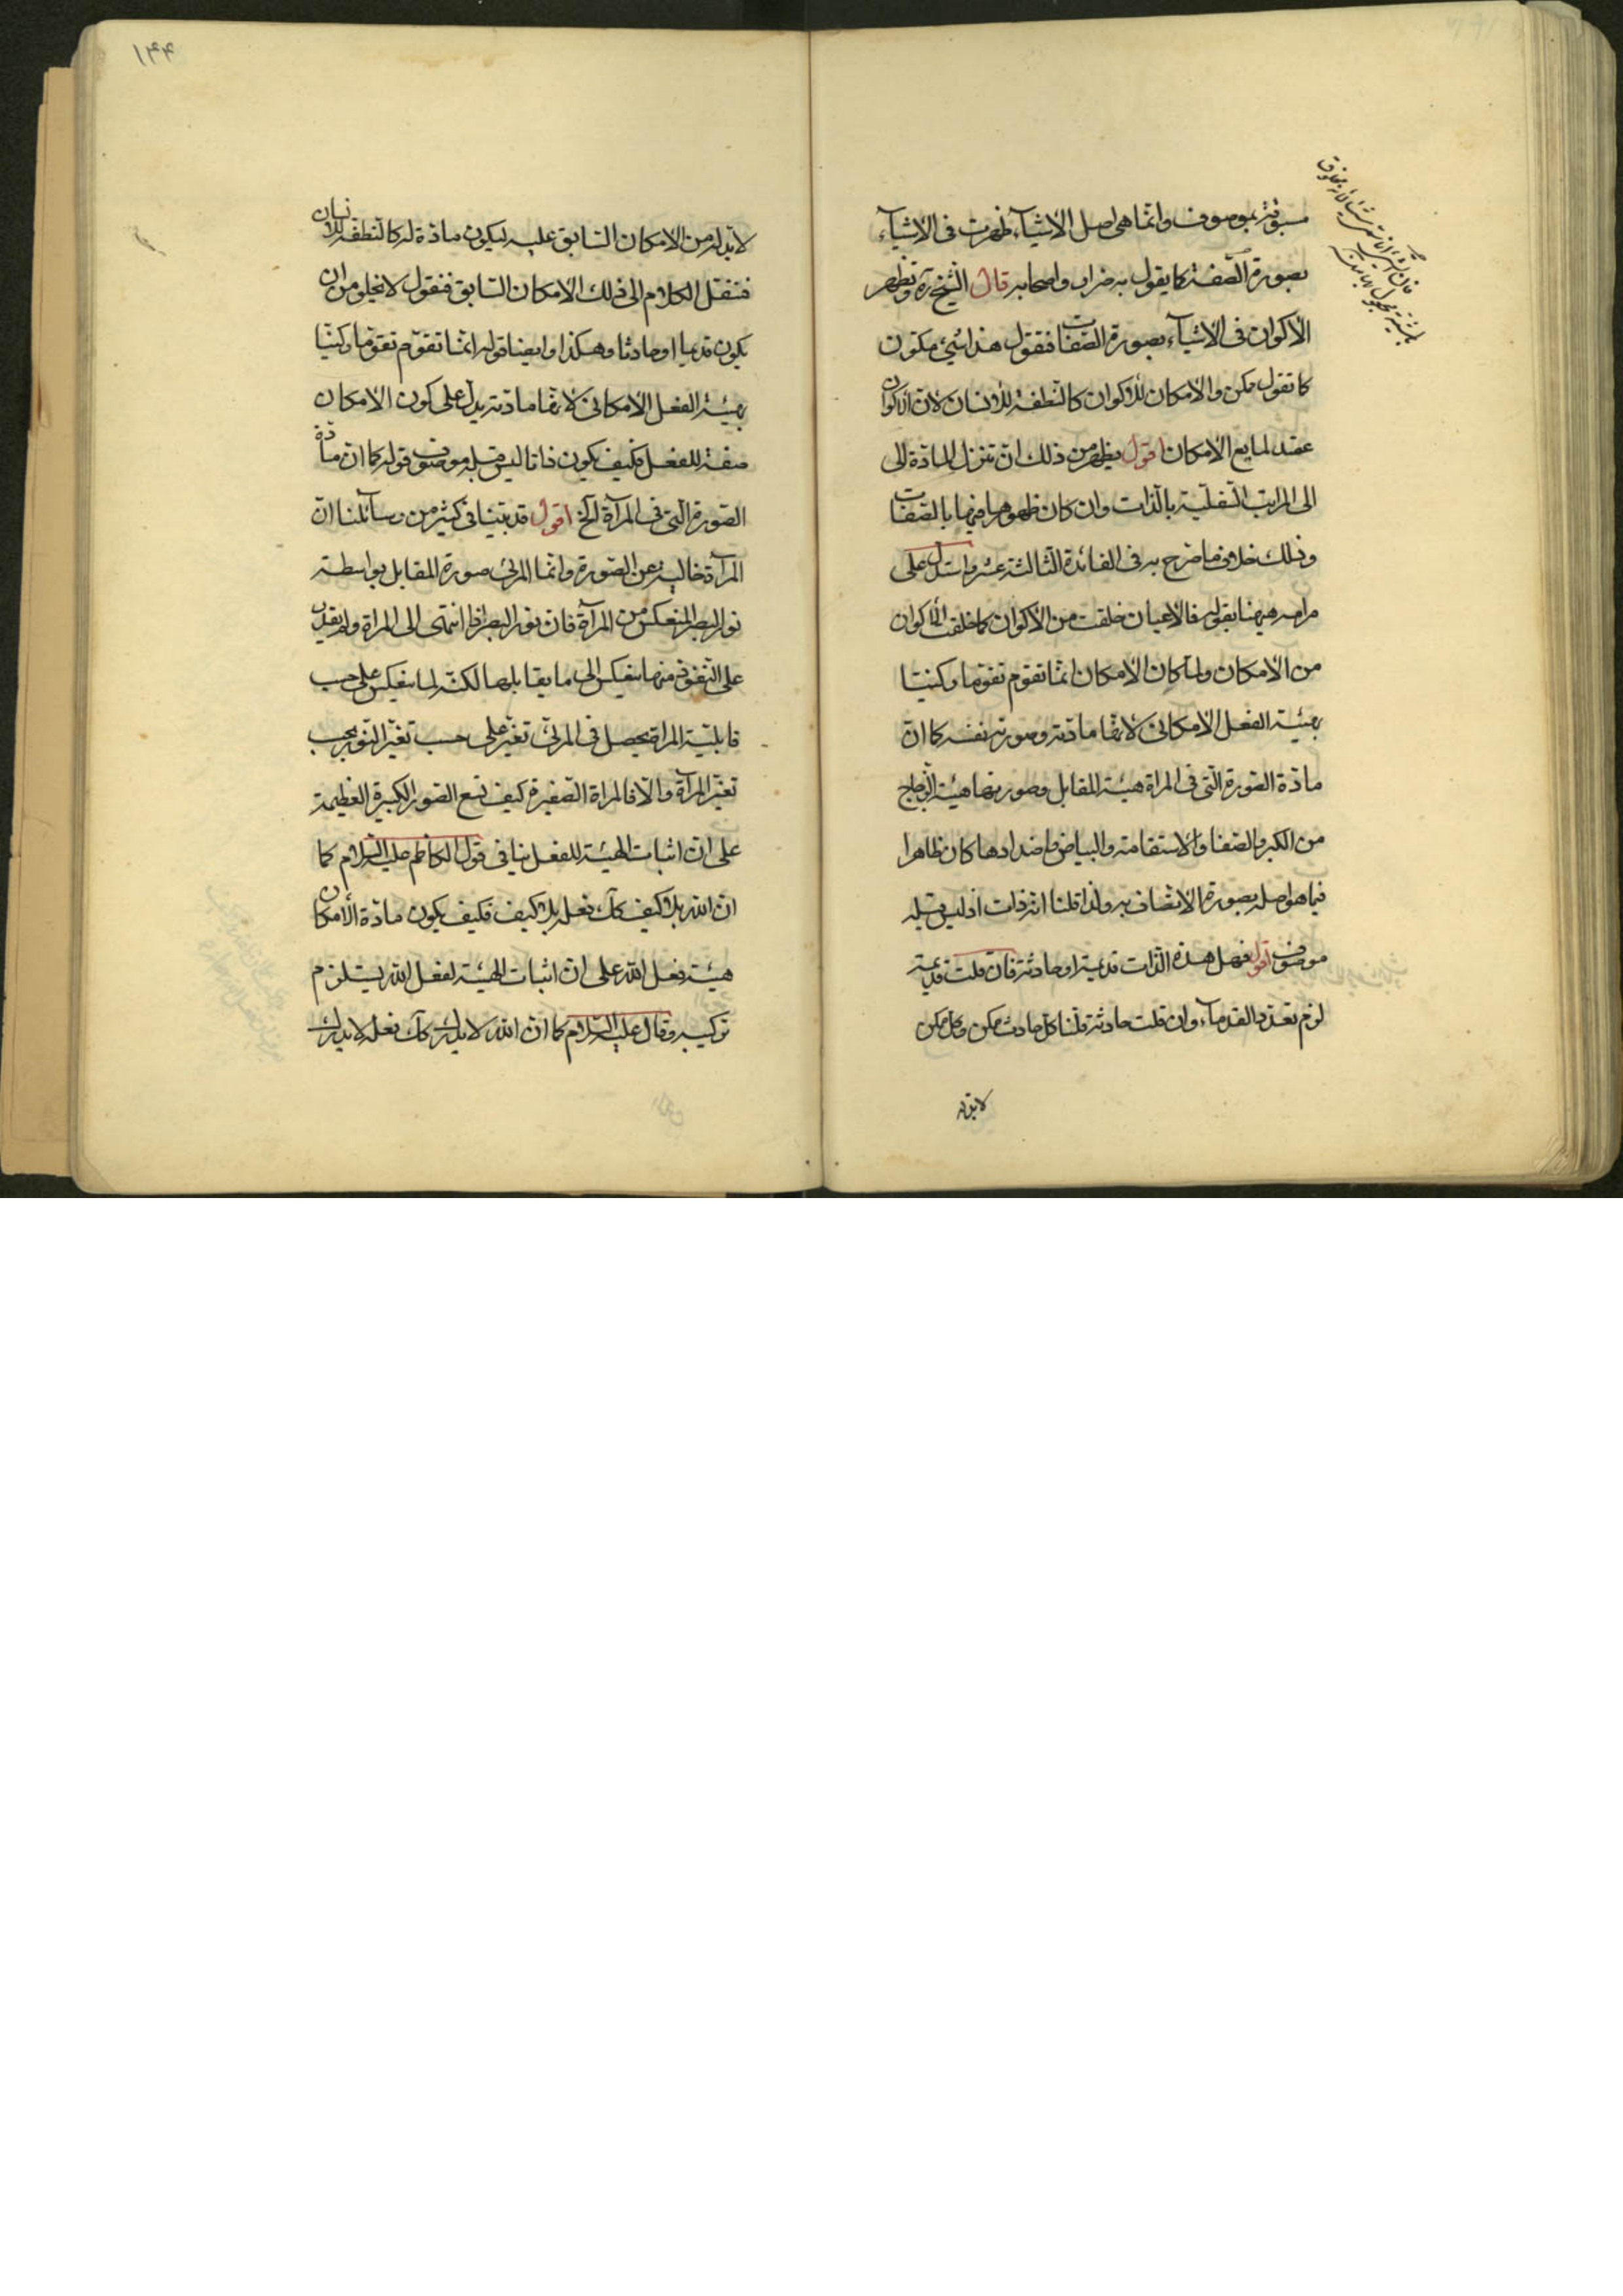 مسبوقة بموصوف وانما هى اصل الاشيآء ظهرت فى الاشيآء
بصورة الصّفة كما يقول به ضرار واصحابه قال الشّيخ ره وتظهر
الاكوان فى الاشيآء بصورة الصّفات فتقول هذا شئ مكون
كما تقول ممكن والامكان للاكوان كالنّطفة للانسان لان الاكوان
عقد لمايع الامكان اقول يظهر من ذلك انّ تنزل المادّة الى
الى المراتب السّفليّة بالذات وان كان ظهورها فيها بالصّفات
وذلك خلاف ما صرّح به فى الفائدة الثالثة عشر واستدل على
مرامه هيهنا بقوله فالاعيان خلقت من الاكوان كما خلقت الاكوان
من الامكان ولما كان الامكان انّما تقوم تقوما ركنيّا
بهيئة الفعل الامكانى لانّها مادّته وصورته نفسه كما انّ
مادّة الصّورة الّتى فى المراة هيئة المقابل وصورتها هيئة الزجاج
من الكبر والصّفا والاستقامة والبياض واضدادها كان ظاهرا
فيما هو اصله بصورة الاتصاف به ولذا قلنا انّه ذات اذ ليس قبله
موصوف اقول فهل هذه الذات قديمة او حادثة فان قلت قديمة
لزم تعدّد القدمآء وان قلت حادثة قلنا كل حادث ممكن وكل ممكن
لابدّ له
١٤٤
لابدّ له من الامكان السّابق عليه ليكون مادّة له كالنطفة للانسان
فننقل الكلام الى ذلك الامكان السّابق فنقول لا يخلو من ان
يكون قديما او حادثا وهكذا وايضا قوله انّما تقوّم تقوّما ركنيّا
بهيئة الفعل الامكانى لانّها مادّته يدل على كون الامكان
صفة للفعل فكيف يكون ذاتا ليس قبله موصوف قوله كما ان مادّة
الصّورة الّتى فى المرآة الخ اقول قد بيّنا فى كثير من رسآئلنا انّ
المرآة خالية عن الصّورة وانّما المرئى صورة المقابل بواسطة
نور البصر المنعكس من المرآة فان نور البصر اذا انتهى الى المراة ولم يقدر
على النّفوذ فيها ينعكس الى ما يقابلها لكنّه لما ينعكس على حسب
قابليّة المراة يحصل فى المرئىّ تغيّر على حسب تغيّر النّور بحسب
تغيّر المرآة والّا فالمراة الصّغيرة كيف تسع الصّور الكبيرة العظيمة
على ان اثبات الهيئة للفعل ينافى قول الكاظم عليه السّلام كما
ان الله بلا كيف كك فعله بلا كيف فكيف يكون مادّة الامكان
هيئة فعل الله على ان اثبات الهيئة لفعل الله يستلزم
تركيبه وقال عليه السّلام كما ان الله لا يدرك كك فعله لا يدرك